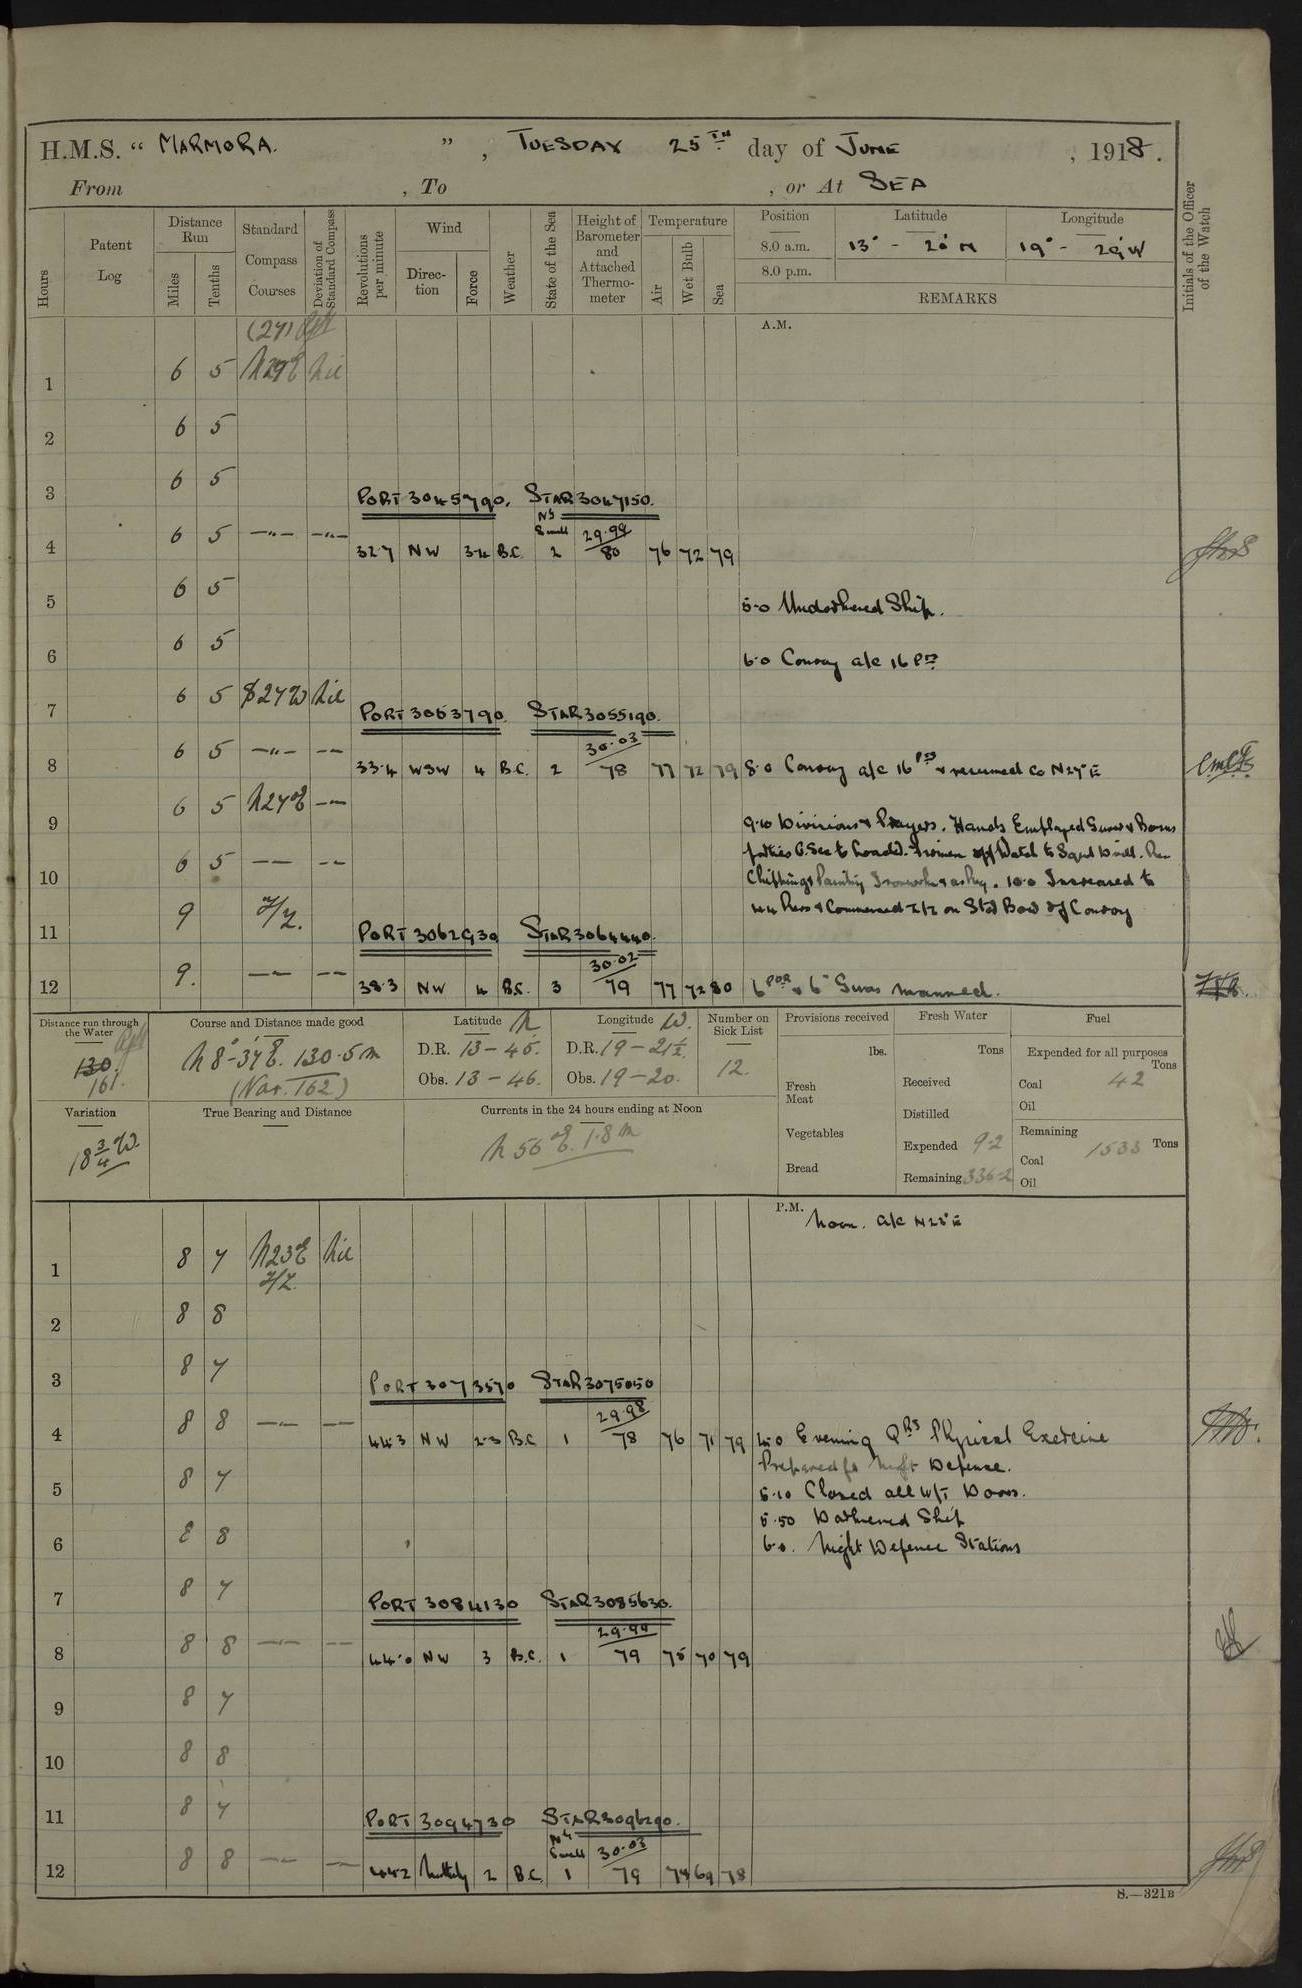 H.M.S. “ MARMORA. ” , TUESDAY 25TH day of JUNE , 1918.
From , To , or At SEA
Hours
Patent Log
Distance Run
Miles
Tenths
Standard Compass Courses
Deviation of Standard Compass
Revolutions per minute
Wind
Direction
Force
Weather
State of the Sea
Height of Barometer and Attached Thermometer
Temperature
Air
Wet Bulb
Sea
Position
8.0 a.m.
8.0 p.m.
Latitude
13° - 20' N
Longitude
19° - 29' W
REMARKS
Initials of the Officer of the Watch
A.M.
(27)
1 6 5 N29E Nil
2 6 5
3 6 5
PORT 3045790. STAR 3047150.
N'ly Swell
4 6 5 —"— —"— 32.7 NW 3.4 B.C. 2 29.99 80 76 72 79
5 6 5
5.0 Undarkened Ship.
6 6 5
6.0 Convoy a/c 16 Pts
7 6 5 S27W Nil
PORT 3053790 STAR 3055190.
8 6 5 —"— —— 33.4 WSW 4 B.C. 2 30.03 78 77 72 79 8.0 Convoy a/c 16 Pts & resumed Co N27°E
9 6 5 N27E ——
9.10 Divisions & Prayers. Hands Employed
10 6 5 —— ——
Chipping & Painting Ironwork 10.0 Increased to
11 9 Z/Z.
44 Revs & Commenced Z/Z on Stbd Bow of Convoy
PORT 3062930 STAR 3064440.
12 9. —— —— 38.3 NW 4 B.C. 3 30.02 79 77 72 80 6" POR & 6" Guns manned.
Distance run through the Water
130.
161.
Course and Distance made good
N 8°-37'E. 130.5m
(Var. 162)
Latitude N
D.R. 13 - 45.
Obs. 13 - 46.
Longitude W.
D.R. 19 - 21½
Obs. 19 - 20.
Number on Sick List
12.
Provisions received
lbs.
Fresh Meat
Vegetables
Bread
Fresh Water
Tons
Received
Distilled
Expended 9.2
Remaining 336.2
Fuel
Expended for all purposes
Tons
Coal 42
Oil
Remaining
Coal 1533 Tons
Oil
Variation
18¾ W.
True Bearing and Distance
Currents in the 24 hours ending at Noon
N 56°E. 1.8m
P.M.
Noon. a/c N23°E
1 8 7 N23E Nil
Z/Z.
2 8 8
3 8 7
PORT 3073570 STAR 3075050
4 8 8 —— —— 44.3 NW 2.3 B.C 1 29.98 78 76 71 79 4.0 Evening Qrs Physical Exercise
Prepared for Night Defence.
5 8 7
5.10 Closed all W/T Doors.
5.50 Darkened Ship
6 8 8
6.0. Night Defence Stations
7 8 7
PORT 3084130 STAR 3085630.
8 8 8 —— —— 44.0 NW 3 B.C. 1 29.99 79 75 70 79
9 8 7
10 8 8
11 8 7
PORT 3094730 STAR 3096290.
N'ly Swell
12 8 8 —— —— 44.2 Northerly 2 B.C. 1 30.03 79 74 69 78
S.—321B